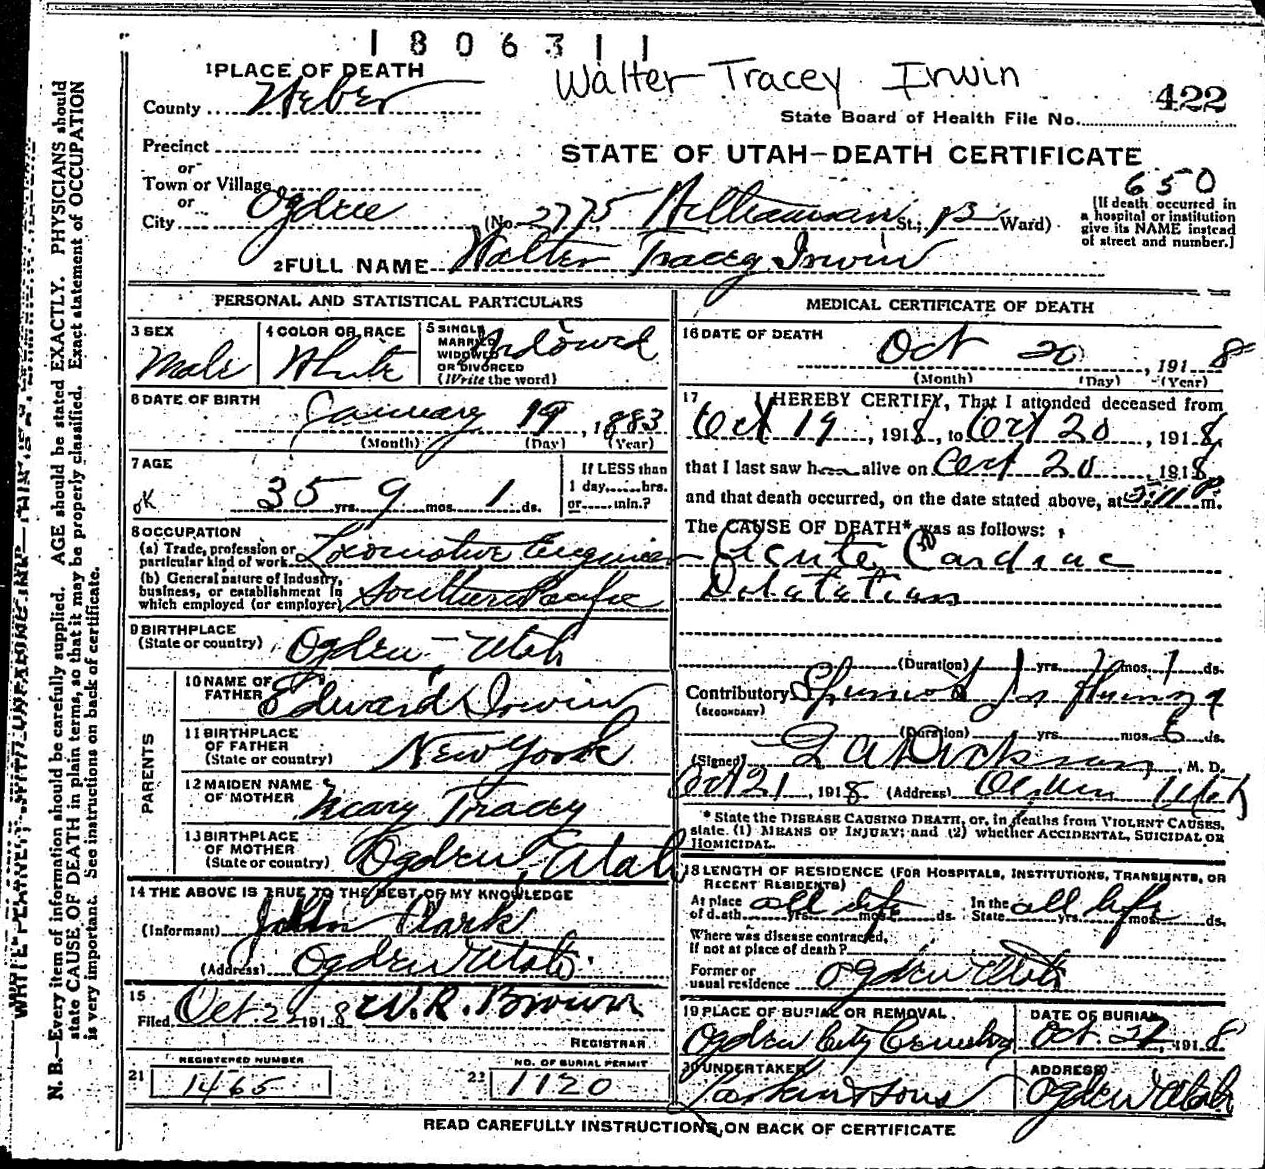 1806311
Walter Tracey Irwin
422
State Board of Health File No.
1 PLACE OF DEATH
County Weber
STATE OF UTAH—DEATH CERTIFICATE
Precinct
or
Town or Village
or
City Ogden (No. 2775 St.; Ward)
650
[If death occurred in
a hospital or institution
give its NAME instead
of street and number.]
2 FULL NAME Walter Tracey Irwin
PERSONAL AND STATISTICAL PARTICULARS
3 SEX
Male
4 COLOR OR RACE
White
5 SINGLE
MARRIED
WIDOWED
OR DIVORCED
(Write the word)
Widowed
6 DATE OF BIRTH
January 19, 1883
(Month) (Day) (Year)
7 AGE
OK 35 yrs. 9 mos. 1 ds.
If LESS than
1 day,......hrs.
or......min.?
8 OCCUPATION
(a) Trade, profession or
particular kind of work Locomotive Engineer
(b) General nature of Industry,
business, or establishment in
which employed (or employer) Southern Pacific
9 BIRTHPLACE
(State or country) Ogden - Utah
PARENTS
10 NAME OF
FATHER Edward Irwin
11 BIRTHPLACE
OF FATHER
(State or country) New York
12 MAIDEN NAME
OF MOTHER Mary Tracey
13 BIRTHPLACE
OF MOTHER
(State or country) Ogden, Utah
14 THE ABOVE IS TRUE TO THE BEST OF MY KNOWLEDGE
(Informant) John Clark
(Address) Ogden Utah
15
Filed Oct 2 1918 W. R. Brown
REGISTRAR
REGISTERED NUMBER
21 1465
NO. OF BURIAL PERMIT
22 1120
MEDICAL CERTIFICATE OF DEATH
16 DATE OF DEATH
Oct 20, 1918
(Month) (Day) (Year)
17 I HEREBY CERTIFY, That I attended deceased from
Oct 19, 1918, to Oct 20, 1918,
that I last saw h alive on Oct 20, 1918,
and that death occurred, on the date stated above, at m.
The CAUSE OF DEATH* was as follows:
Acute Cardiac
Dilatation
(Duration) yrs. mos. 1 ds.
Contributory
(SECONDARY)
(Duration) yrs. mos. 6 ds.
(Signed) Dickson, M. D.
Oct 21, 1918 (Address) Ogden Utah
* State the DISEASE CAUSING DEATH, or, in deaths from VIOLENT CAUSES,
state (1) MEANS OF INJURY; and (2) whether ACCIDENTAL, SUICIDAL OR
HOMICIDAL.
18 LENGTH OF RESIDENCE (FOR HOSPITALS, INSTITUTIONS, TRANSIENTS, OR
RECENT RESIDENTS)
At place
of death all life yrs. mos. ds.
In the
State all life yrs. mos. ds.
Where was disease contracted,
If not at place of death?
Former or
usual residence Ogden Utah
19 PLACE OF BURIAL OR REMOVAL
Ogden City Cemetery
DATE OF BURIAL
Oct. 22, 1918
20 UNDERTAKER
Larkin & Sons
ADDRESS
Ogden Utah
READ CAREFULLY INSTRUCTIONS ON BACK OF CERTIFICATE
N. B.—Every item of information should be carefully supplied. AGE should be stated EXACTLY. PHYSICIANS should
state CAUSE OF DEATH in plain terms, so that it may be properly classified. Exact statement of OCCUPATION
is very important. See instructions on back of certificate.